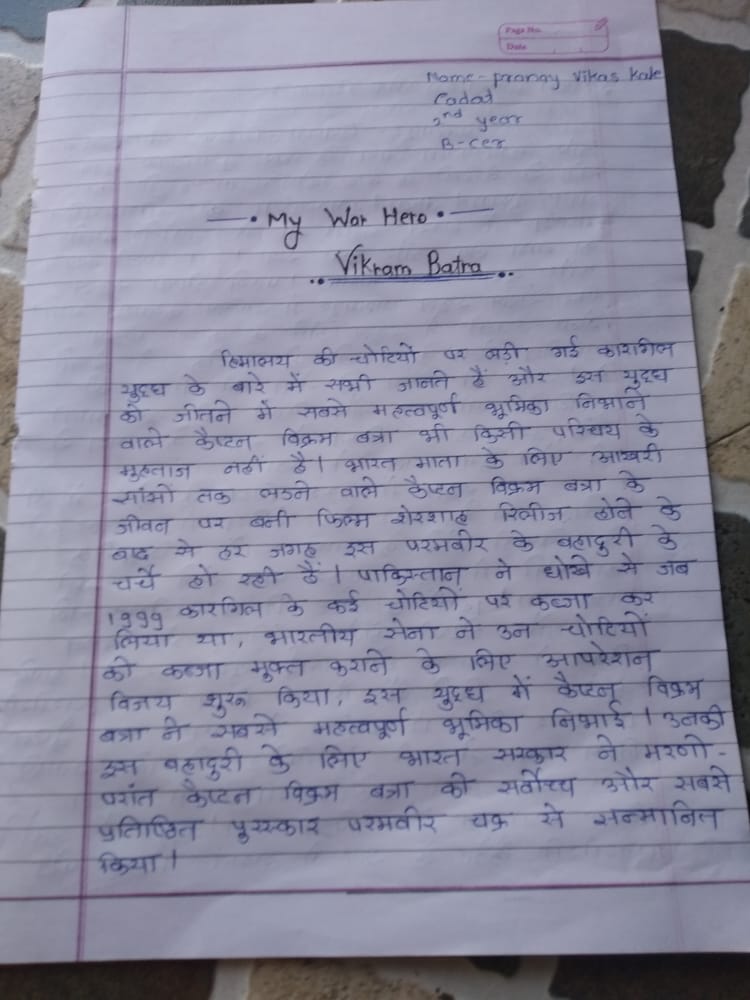 Page No.
Date
Name - pranay Vikas Kale
Cadat
2nd year
B-cer
My War Hero
Vikram Batra
हिमालय की चोटियों पर लड़ी गई कारगिल
युद्ध के बारे में सभी जानते है और इस युद्ध
को जीतने में सबसे महत्वपूर्ण भूमिका निभाने
वाले कैप्टन विक्रम बत्रा भी किसी परिचय के
मुहताज नहीं है। भारत माता के लिए आखरी
सांसो तक लडने वाले कैप्टन विक्रम बत्रा के
जीवन पर बनी फिल्म शेरशाह रिलीज होने के
बाद से हर जगह इस परमवीर के बहादुरी के
चर्चे हो रही हैं। पाकिस्तान ने धोखे से जब
1999 कारगिल के कई चोटियों पर कब्जा कर
लिया था, भारतीय सेना ने उन चोटियों
को कब्जा मुक्त कराने के लिए आपरेशन
विजय शुरू किया, इस युद्ध में कैप्टन विक्रम
बत्रा ने सबसे महत्वपूर्ण भूमिका निभाई। उनकी
इस बहादुरी के लिए भारत सरकार ने मरणो-
परांत कैप्टन विक्रम बत्रा को सर्वोच्च और सबसे
प्रतिष्ठित पुरस्कार परमवीर चक्र से सन्मानित
किया।